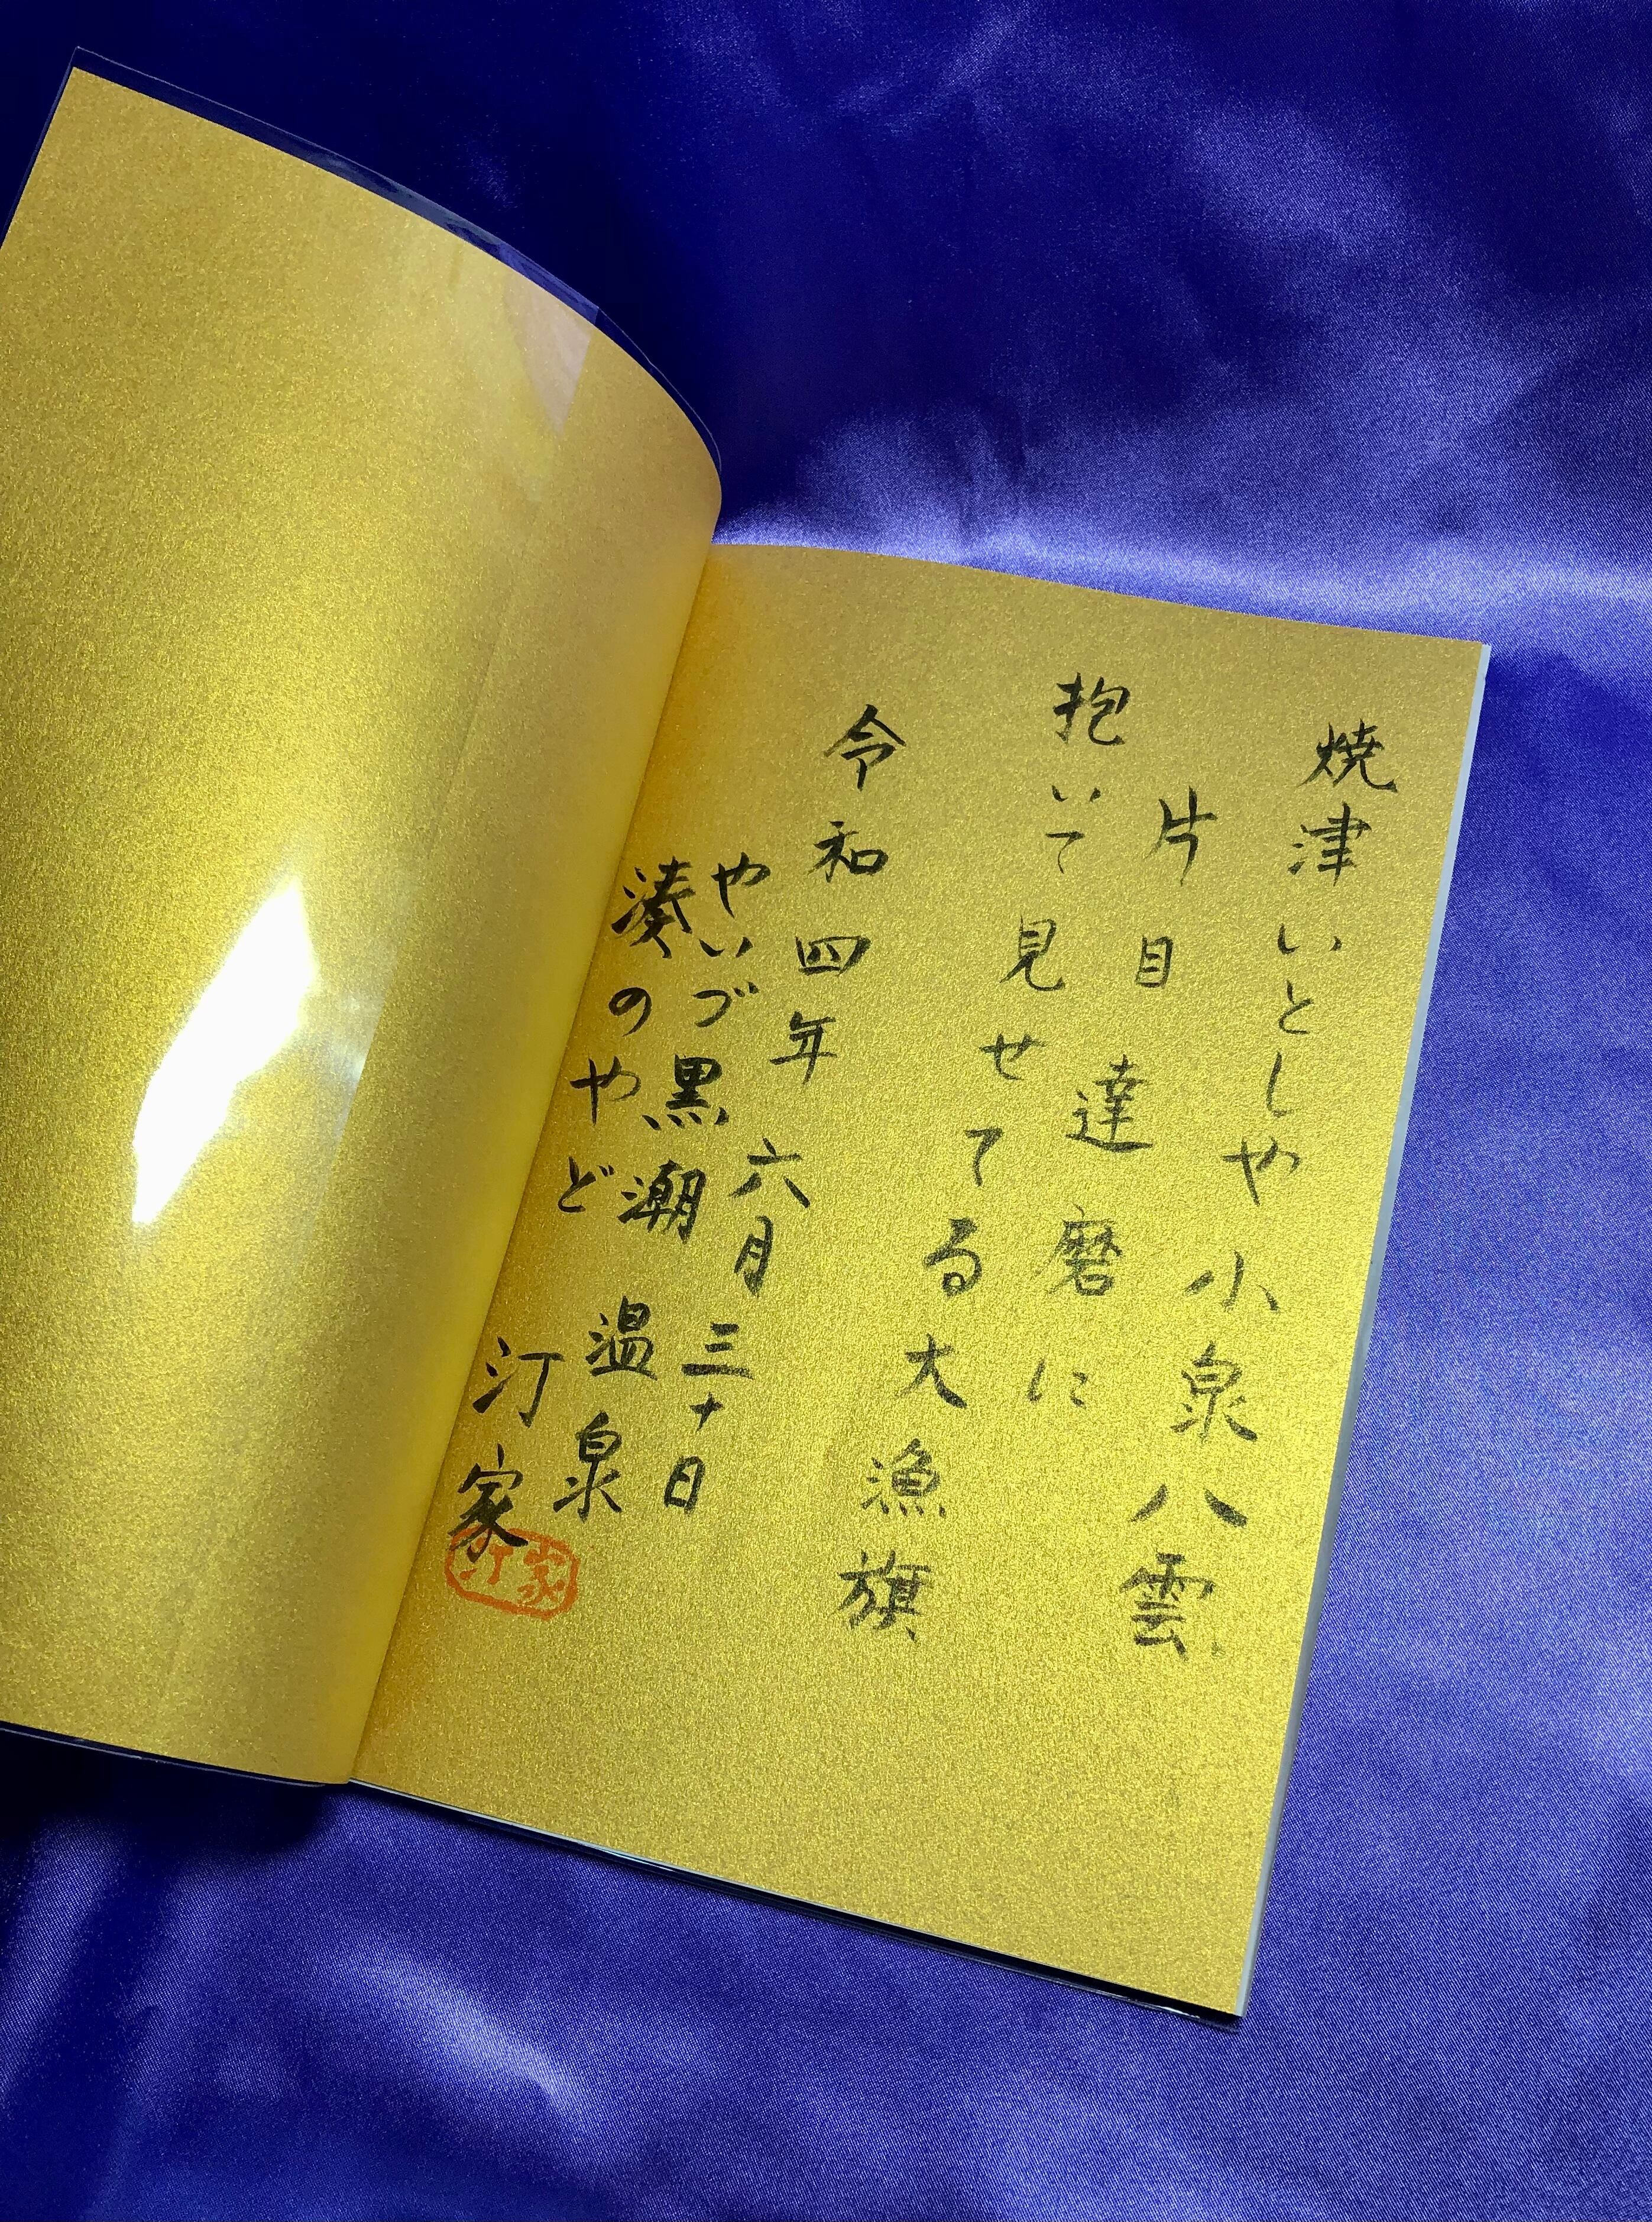 焼津いとしや小泉八雲
片目達磨に
抱いて見せてる大漁旗
令和四年六月三十日
やいづ黒潮温泉
湊のやど汀家
汀家